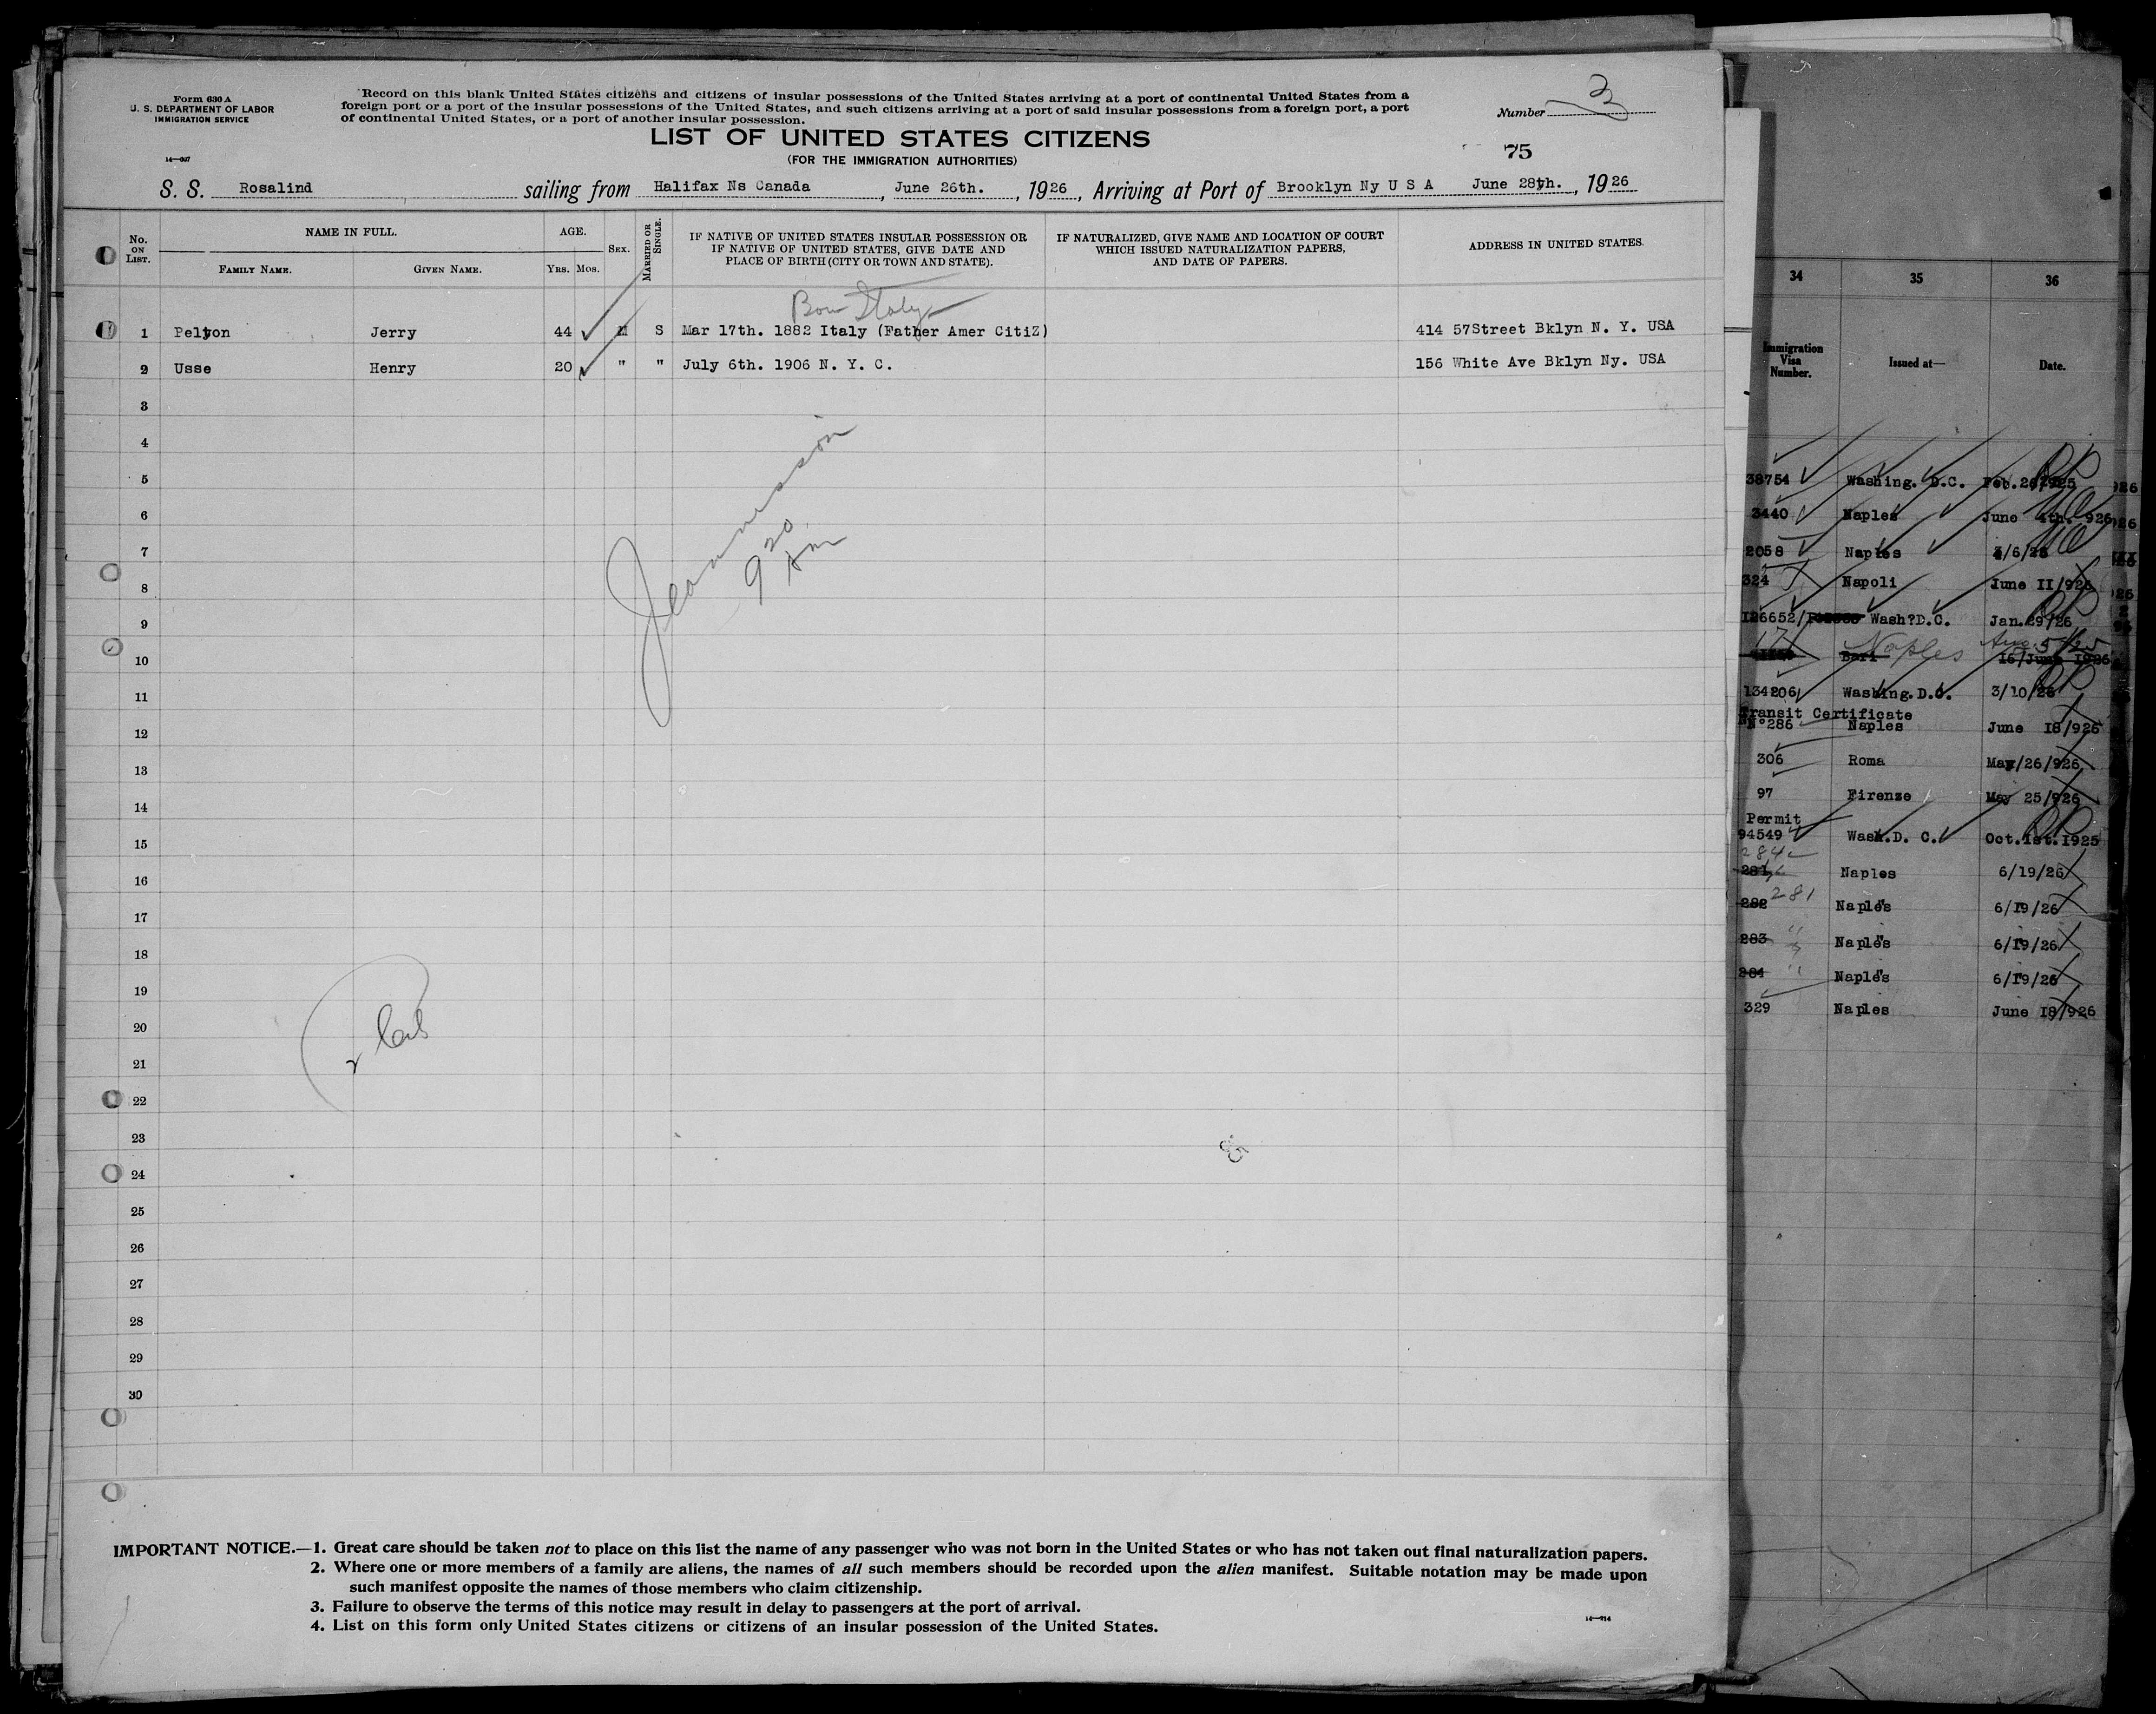 Form 630 A
U. S. DEPARTMENT OF LABOR
IMMIGRATION SERVICE
14—607
Record on this blank United States citizens and citizens of insular possessions of the United States arriving at a port of continental United States from a
foreign port or a port of the insular possessions of the United States, and such citizens arriving at a port of said insular possessions from a foreign port, a port
of continental United States, or a port of another insular possession.
Number 3
LIST OF UNITED STATES CITIZENS
(FOR THE IMMIGRATION AUTHORITIES)
75
S. S. Rosalind sailing from Halifax Ns Canada, June 26th., 1926, Arriving at Port of Brooklyn Ny U S A June 28th., 1926
No. ON LIST.
NAME IN FULL.
FAMILY NAME.
GIVEN NAME.
AGE.
YRS. MOS.
SEX.
MARRIED OR SINGLE.
IF NATIVE OF UNITED STATES INSULAR POSSESSION OR
IF NATIVE OF UNITED STATES, GIVE DATE AND
PLACE OF BIRTH (CITY OR TOWN AND STATE).
IF NATURALIZED, GIVE NAME AND LOCATION OF COURT
WHICH ISSUED NATURALIZATION PAPERS,
AND DATE OF PAPERS.
ADDRESS IN UNITED STATES.
Born Italy
1 Pelton Jerry 44 M S Mar 17th. 1882 Italy (Father Amer CitiZ) 414 57Street Bklyn N. Y. USA
2 Usse Henry 20 " " July 6th. 1906 N. Y. C. 156 White Ave Bklyn Ny. USA
3
4
5
6
7
8
9
10
11
12
13
14
15
16
17
18
19
20
21
22
23
24
25
26
27
28
29
30
9 30
am
2
IMPORTANT NOTICE.—1. Great care should be taken not to place on this list the name of any passenger who was not born in the United States or who has not taken out final naturalization papers.
2. Where one or more members of a family are aliens, the names of all such members should be recorded upon the alien manifest. Suitable notation may be made upon
such manifest opposite the names of those members who claim citizenship.
3. Failure to observe the terms of this notice may result in delay to passengers at the port of arrival.
4. List on this form only United States citizens or citizens of an insular possession of the United States.
14—914
34 35 36
Immigration Visa Number.
Issued at—
Date.
38754 Washing. D.C. Feb.
3440 Naples June 4th. 926
2058 Naples
324 Napoli June II/926
I26652/ Wash?D.C. Jan.29/26
17 Naples Aug 5/25
Bari 16/June 1926
134206 Washing.D.C. 3/10/26
Transit Certificate
N°286 Naples June 18/926
306 Roma May/26/926
97 Firenze May 25/926
Permit
94549 Wash.D. C. Oct.1st.1925
284
Naples 6/19/26
281
282 Naples 6/19/26
283 Naples 6/19/26
284 Naples 6/19/26
329 Naples June 18/926